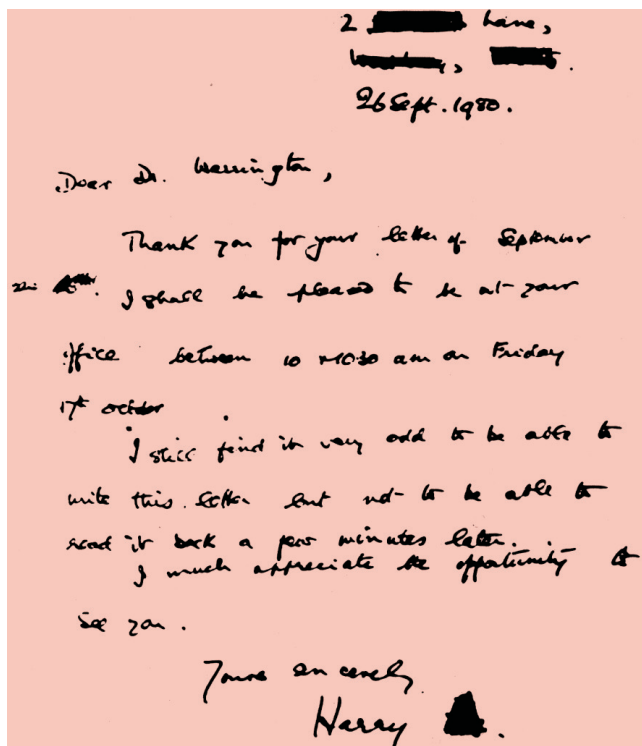 2 Lane,
26 Sept. 1980.
Dear Dr. Warrington,
Thank you for your letter of September
I shall be pleased to be at your
office between 10 - 1030 am on Friday
17th october
I still find it very odd to be able to
write this letter but not to be able to
read it back a few minutes later.
I much appreciate the opportunity to
see you.
Yours sincerely
Harry